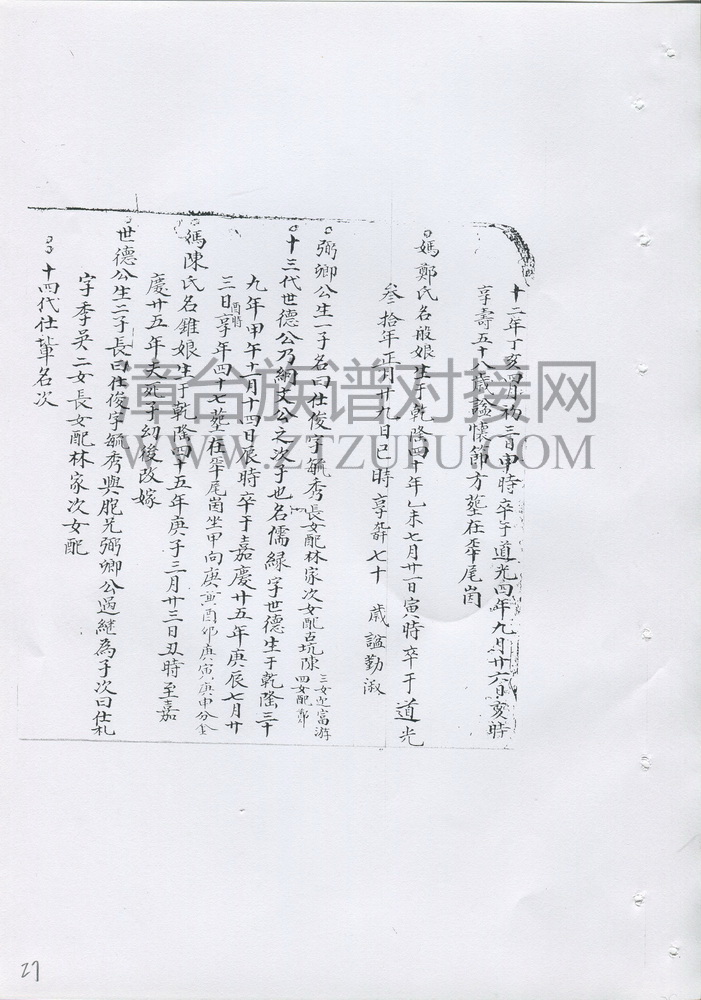 十二年丁亥四月初三日申時卒于道光四年九月廿六日亥時
享壽五十八歲謚懷節方塟在犂尾崗
媽鄭氏名般娘生于乾隆四十年乙未七月廿一日寅時卒于道光
叁拾年正月廿九日巳時享年七十 歲謚勤淑
弼卿公生一子名曰仕俊字毓秀長女配林家次女配古坑陳
三女迎富游
四女配鄭
十三代世德公乃炯文公之次子也名儒緑字世德生于乾隆三十
九年甲午十一月十四日辰時卒于嘉慶廿五年庚辰七月廿
三日酉時享年四十七塟在犂尾崗坐甲向庚兼酉卯庚寅庚申分金
媽陳氏名錐娘生于乾隆四十五年庚子三月廿三日丑時至嘉
慶廿五年夫死子幼後改嫁
世德公生二子長曰仕俊字毓秀與胞兄弼卿公過継為子次曰仕札
字季英二女長女配林家次女配
十四代仕輩名次
章台族谱对接网
WWW.ZTZUPU.COM
27